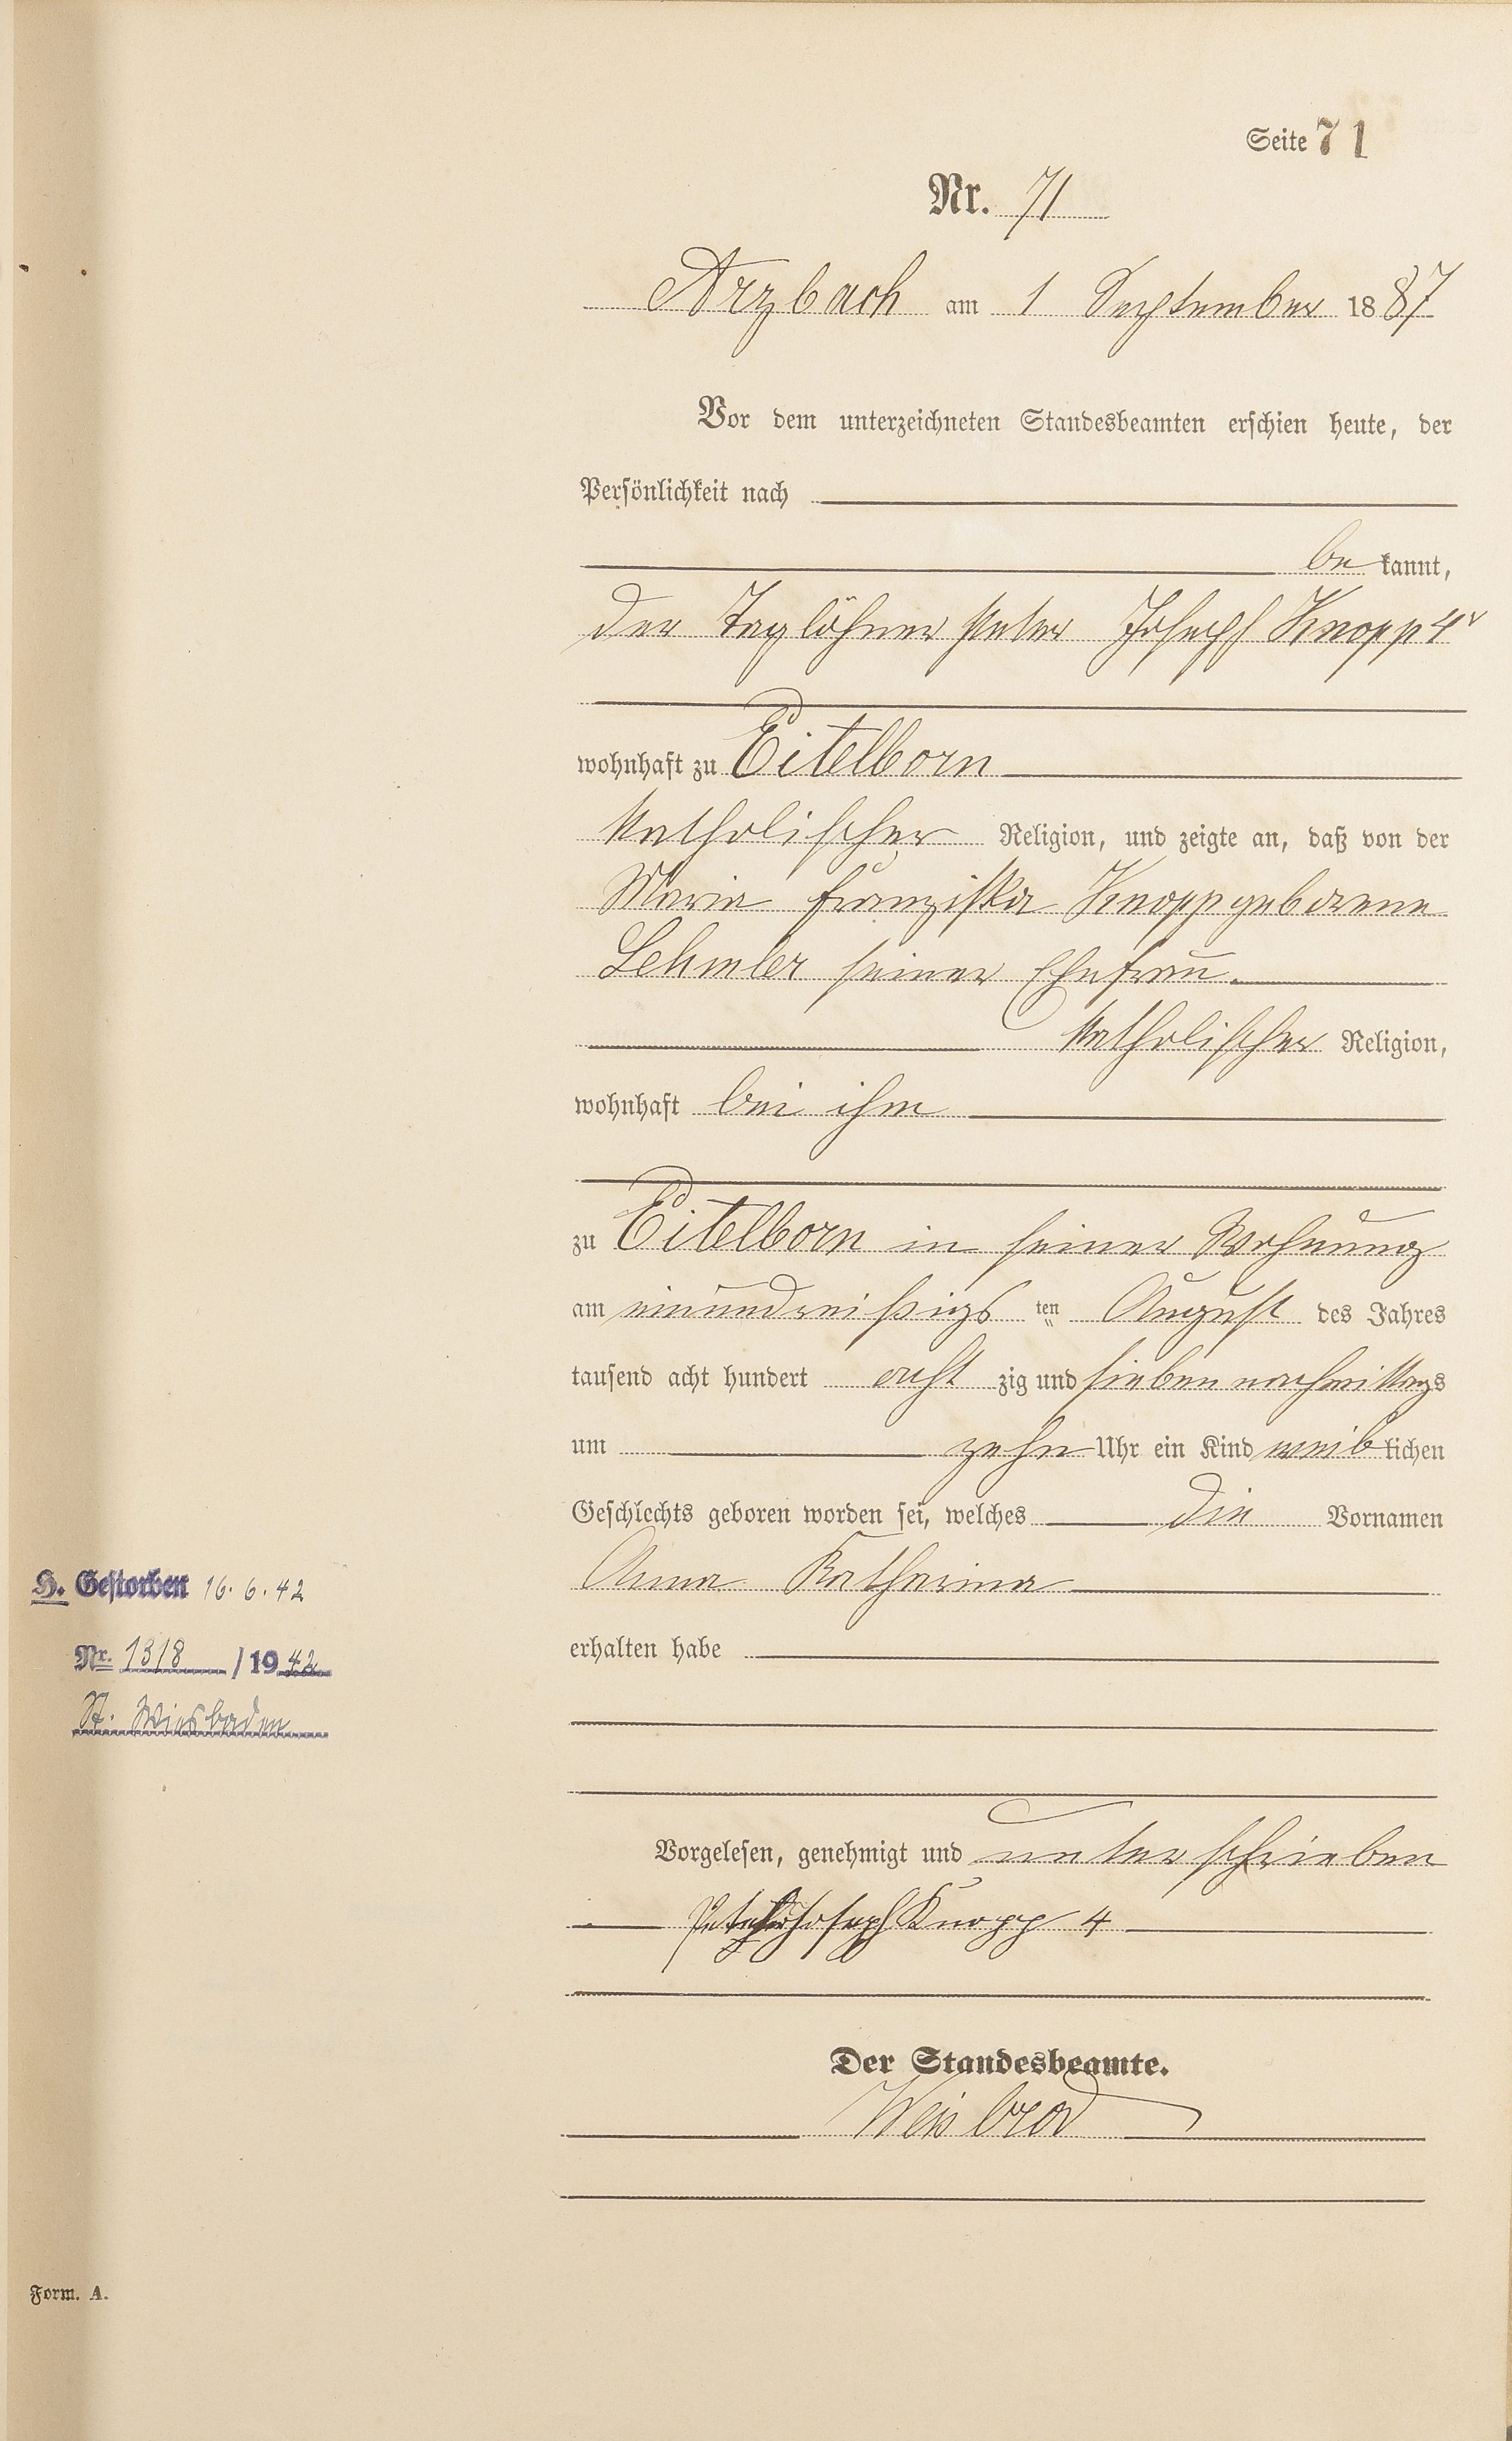 Seite 71
Nr. 71
Arzbach am 1 September 1887
Vor dem unterzeichneten Standesbeamten erschien heute, der
Persönlichkeit nach
be kannt,
der Taglöhner Peter Joseph Knopp 4r
wohnhaft zu Eitelborn
katholischer Religion, und zeigte an, daß von der
Maria Franziska Knopp geborene
Lehmler seiner Ehefrau.
katholischer Religion,
wohnhaft bei ihm
zu Eitelborn in seiner Wohnung
am einundreißigs ten August des Jahres
tausend acht hundert acht zig und sieben nachmittags
um zehn Uhr ein Kind weib lichen
Geschlechts geboren worden sei, welches die Vornamen
Anna Katharina
erhalten habe
H. Gestorben 16.6.42
Nr. 1318 / 1942
St. Wiesbaden
Vorgelesen, genehmigt und unterschrieben
Peter Joseph Knopp 4
Der Standesbeamte.
Weisbrod
Form. A.